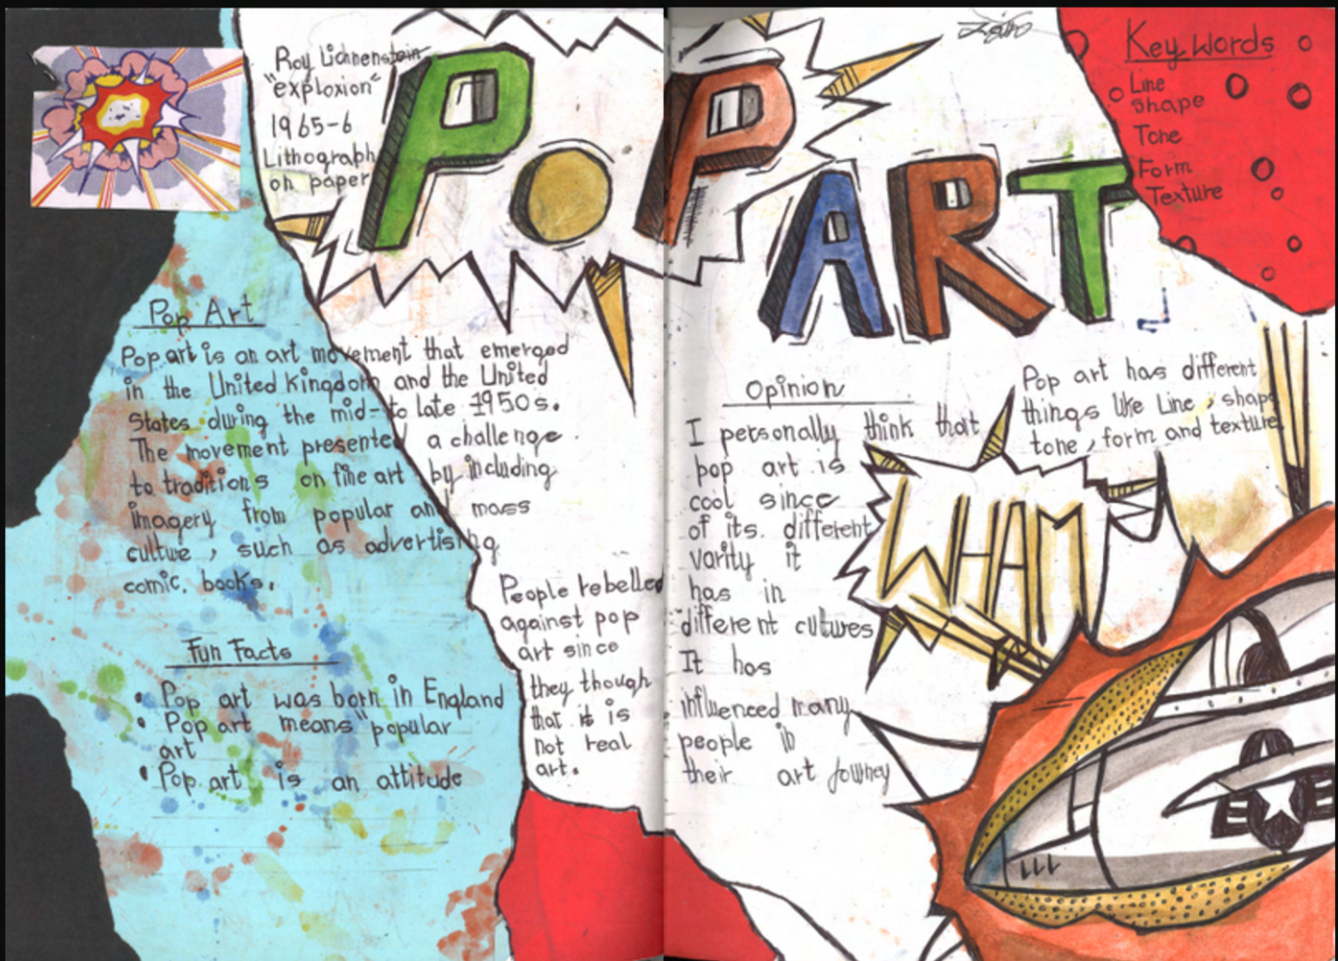 Roy Lichenenstein
"exploxion"
1965-6
Lithograph
on paper
POP
ART
Key Words
Line
shape
Tone
Form
Texture
Pop Art
Pop art is an art movement that emerged
in the United Kingdom and the United
States during the mid-to late 1950s.
The movement presented a challenge
to traditions on fine art by including
imagery from popular and mass
culture, such as advertising
comic. books.
People rebelled
against pop
art since
they though
that it is
not real
art.
Fun Facts
• Pop art was born in England
• Pop art means "popular
art
• Pop art is an attitude
Opinion
I personally think that
pop art is
cool since
of its. different
varity it
has in
different cutures
It has
influenced many
people in
their art journey
Pop art has different
things like Line, shape
tone, form and texture
WHAM